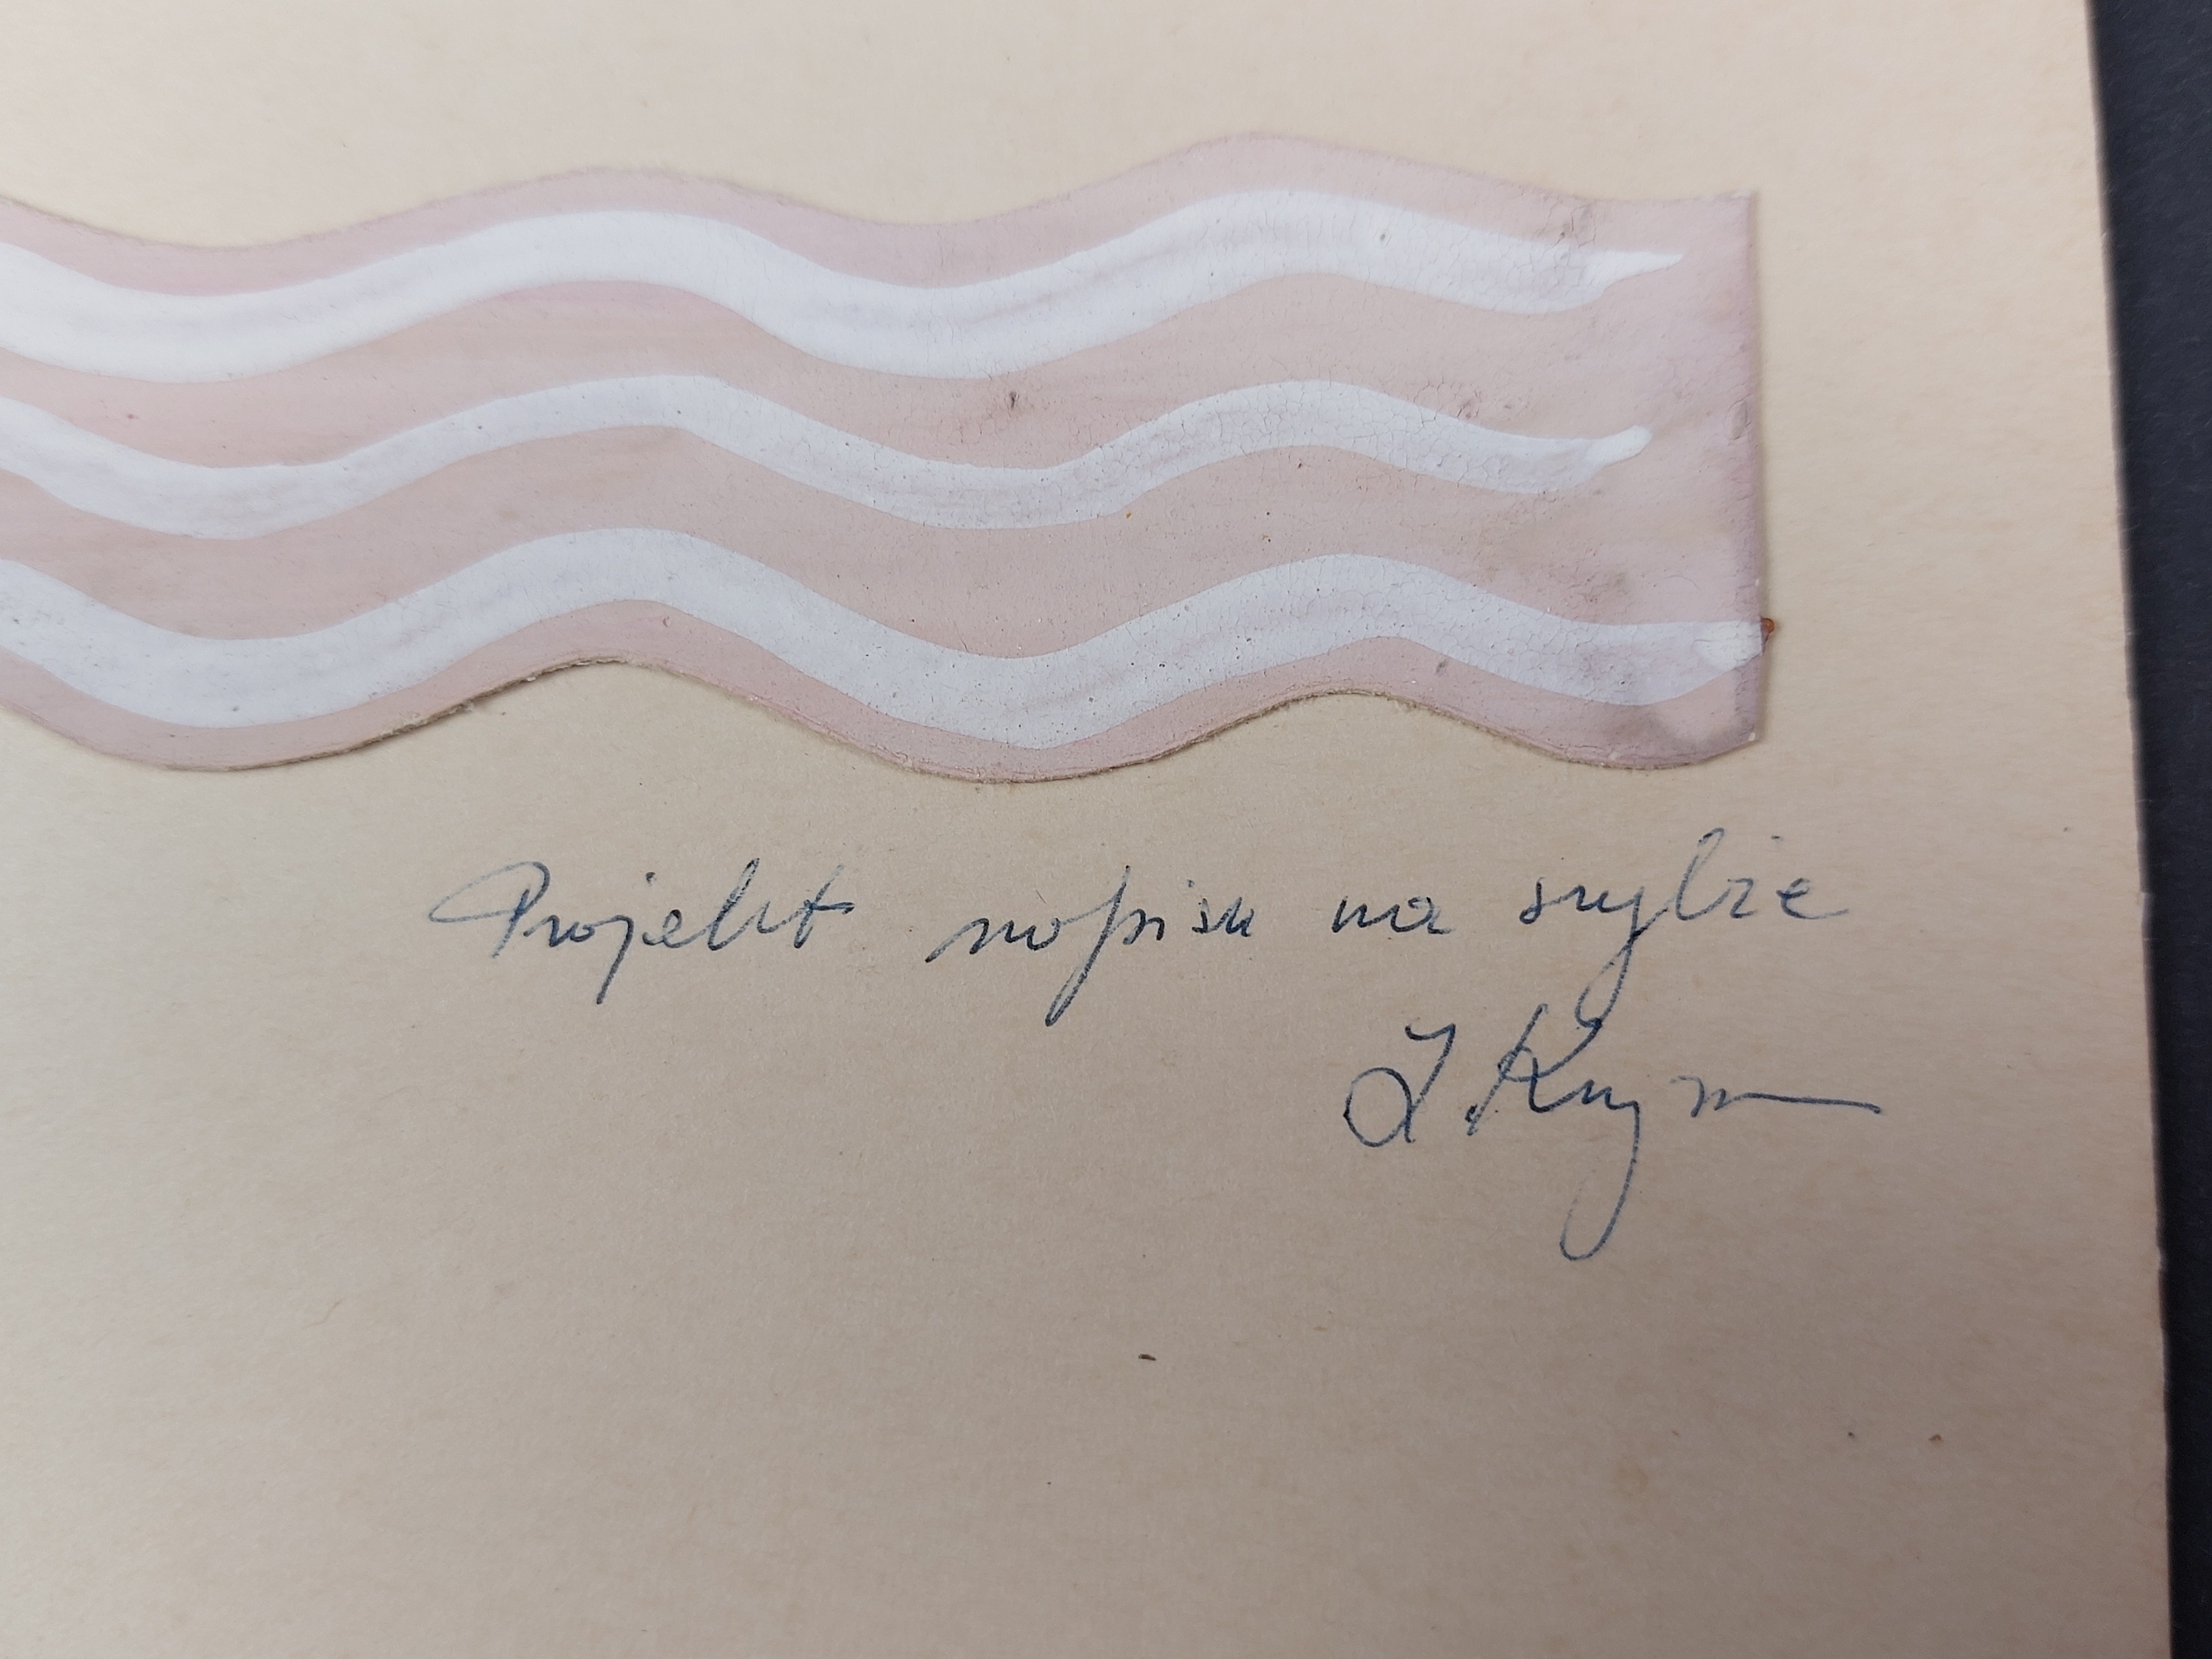 Projekt napisu na szybie